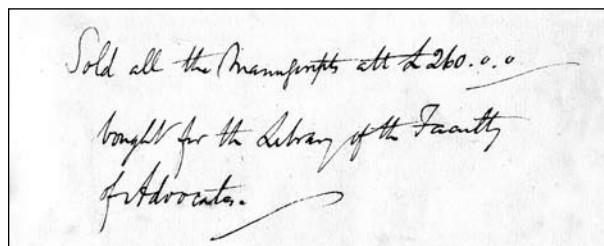 Sold all the Manuscripts att £260.0.0
bought for the Library of the Faculty
of Advocates.